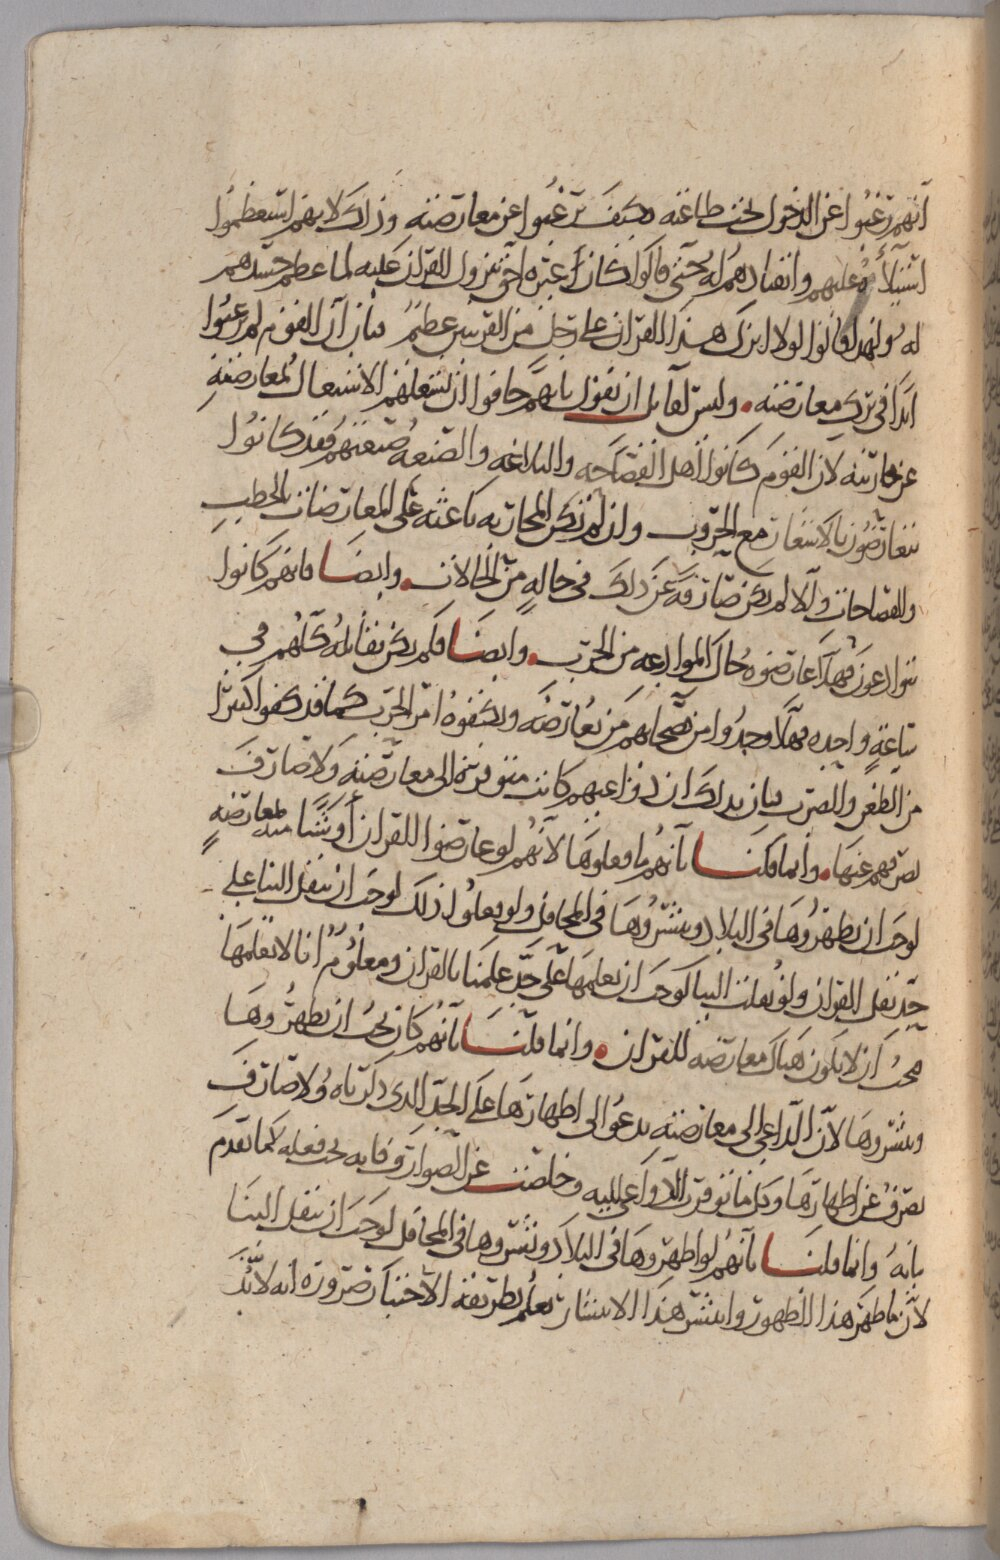 انهم رغبوا عن الدخول تحت طاعته فكيف يرغبوا عن معارضته وذلك لانهم استعظموا
استيلاءه عليهم وانقيادهم له حتى قالوا كان غيره احق بنزول القران عليه لما عظم حسدهم
له ولهذا قالوا لولا انزل هذا القران على رجل من القريتين عظيم فبان ان القوم لم يرغبوا
ابدا في ترك معارضته وليس لقائل ان يقول بانهم خافوا ان يشغلهم الاشتغال بمعارضته
عن محاربته لان القوم كانوا اهل الفصاحه والبلاغه والصنعه صنعتهم فقد كانوا
يتعارضون بالاشعار مع الحروب وان لم تكن المحاربه باعثه على المعارضات بالخطب
والفصاحات والا لم تكن صارفه عن ذلك في حاله من الحالات وايضا فانهم كانوا
يتوادعون فهلا عارضوه حال الموادعه من الحرب وايضا فلم يكن يقاتله كلهم في
ساعة واحده فهلا وجدوا من فصحائهم من يعارضه ويكفوه امر الحرب كما قد كفوا كثيرا
من الطعن والضرب فبان بذلك ان دواعيهم كانت متوفرة الى معارضته ولا صارف
يصرفهم عنها وانما قلنا بانهم ما فعلوها لانهم لو عارضوا القران او شيا منه لمعارضة
لوجب ان يظهروها في البلاد وينشروها في المحافل ولو فعلوا ذلك لوجب ان ينقل الينا على
حد نقل القران ولو نقلت الينا لوجب ان نعلمها على حد علمنا بالقران ومعلوم انا لا نعلمها
فيجب ان لا يكون هناك معارضه للقران وانما قلنا بانهم كان يجب ان يظهروها
وينشروها لان الداعي الى معارضته يدعو الى اظهارها على الحد الذي ذكرناه ولا صارف
يصرف عن اظهارها وكل ما توفرت الدواعي اليه وخلصت عن الصوارف فانه يجب فعله كما تقدم
بيانه وانما قلنا بانهم لو اظهروها في البلاد ونشروها في المحافل لوجب ان ينقل الينا
لان ما ظهر هذا الظهور وانتشر هذا الانتشار نعلم بطريقة الاختبار ضرورة انه لا بد